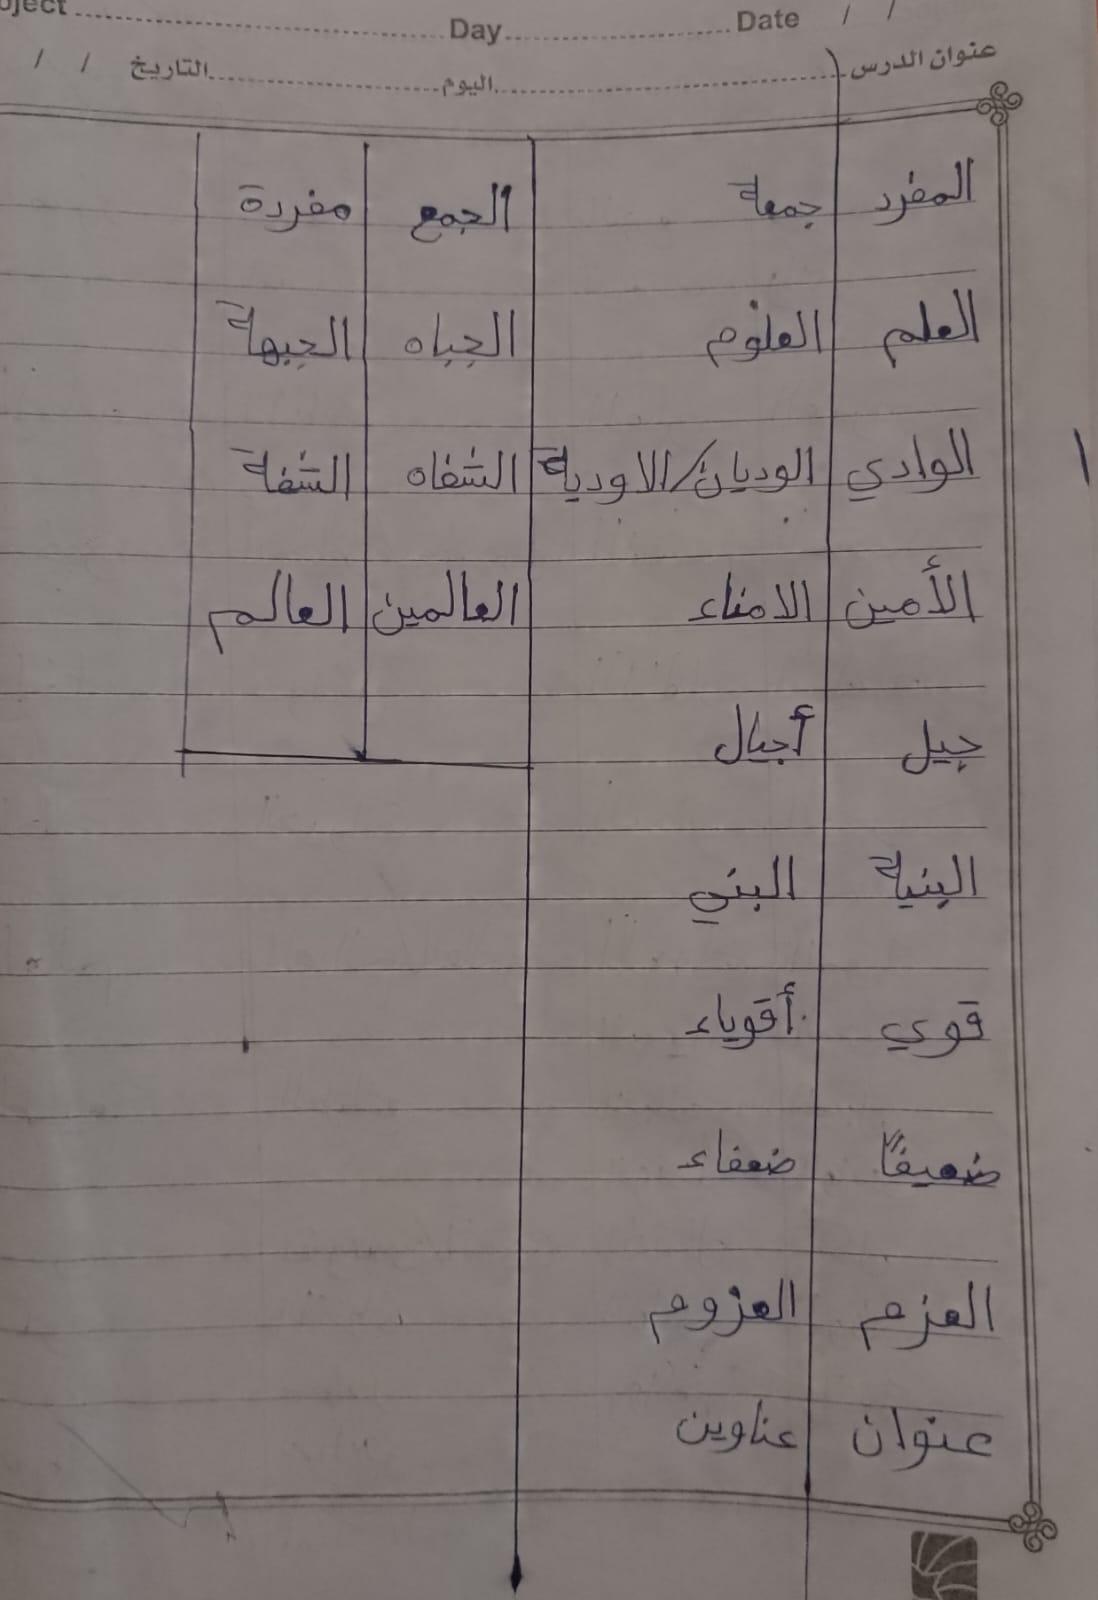 Date / / Day
عنوان الدرس اليوم التاريخ / /
المفرد جمعه الجمع مفردة
العلم العلوم الجباه الجبهة
الوادي الوديان/الاودية الشفاه الشفة
الأمين الامناء العالمين العالم
جيل أجيال
البنية البني
قوي أقوياء
ضعيفًا ضعفاء
العزم العزوم
عنوان عناوين